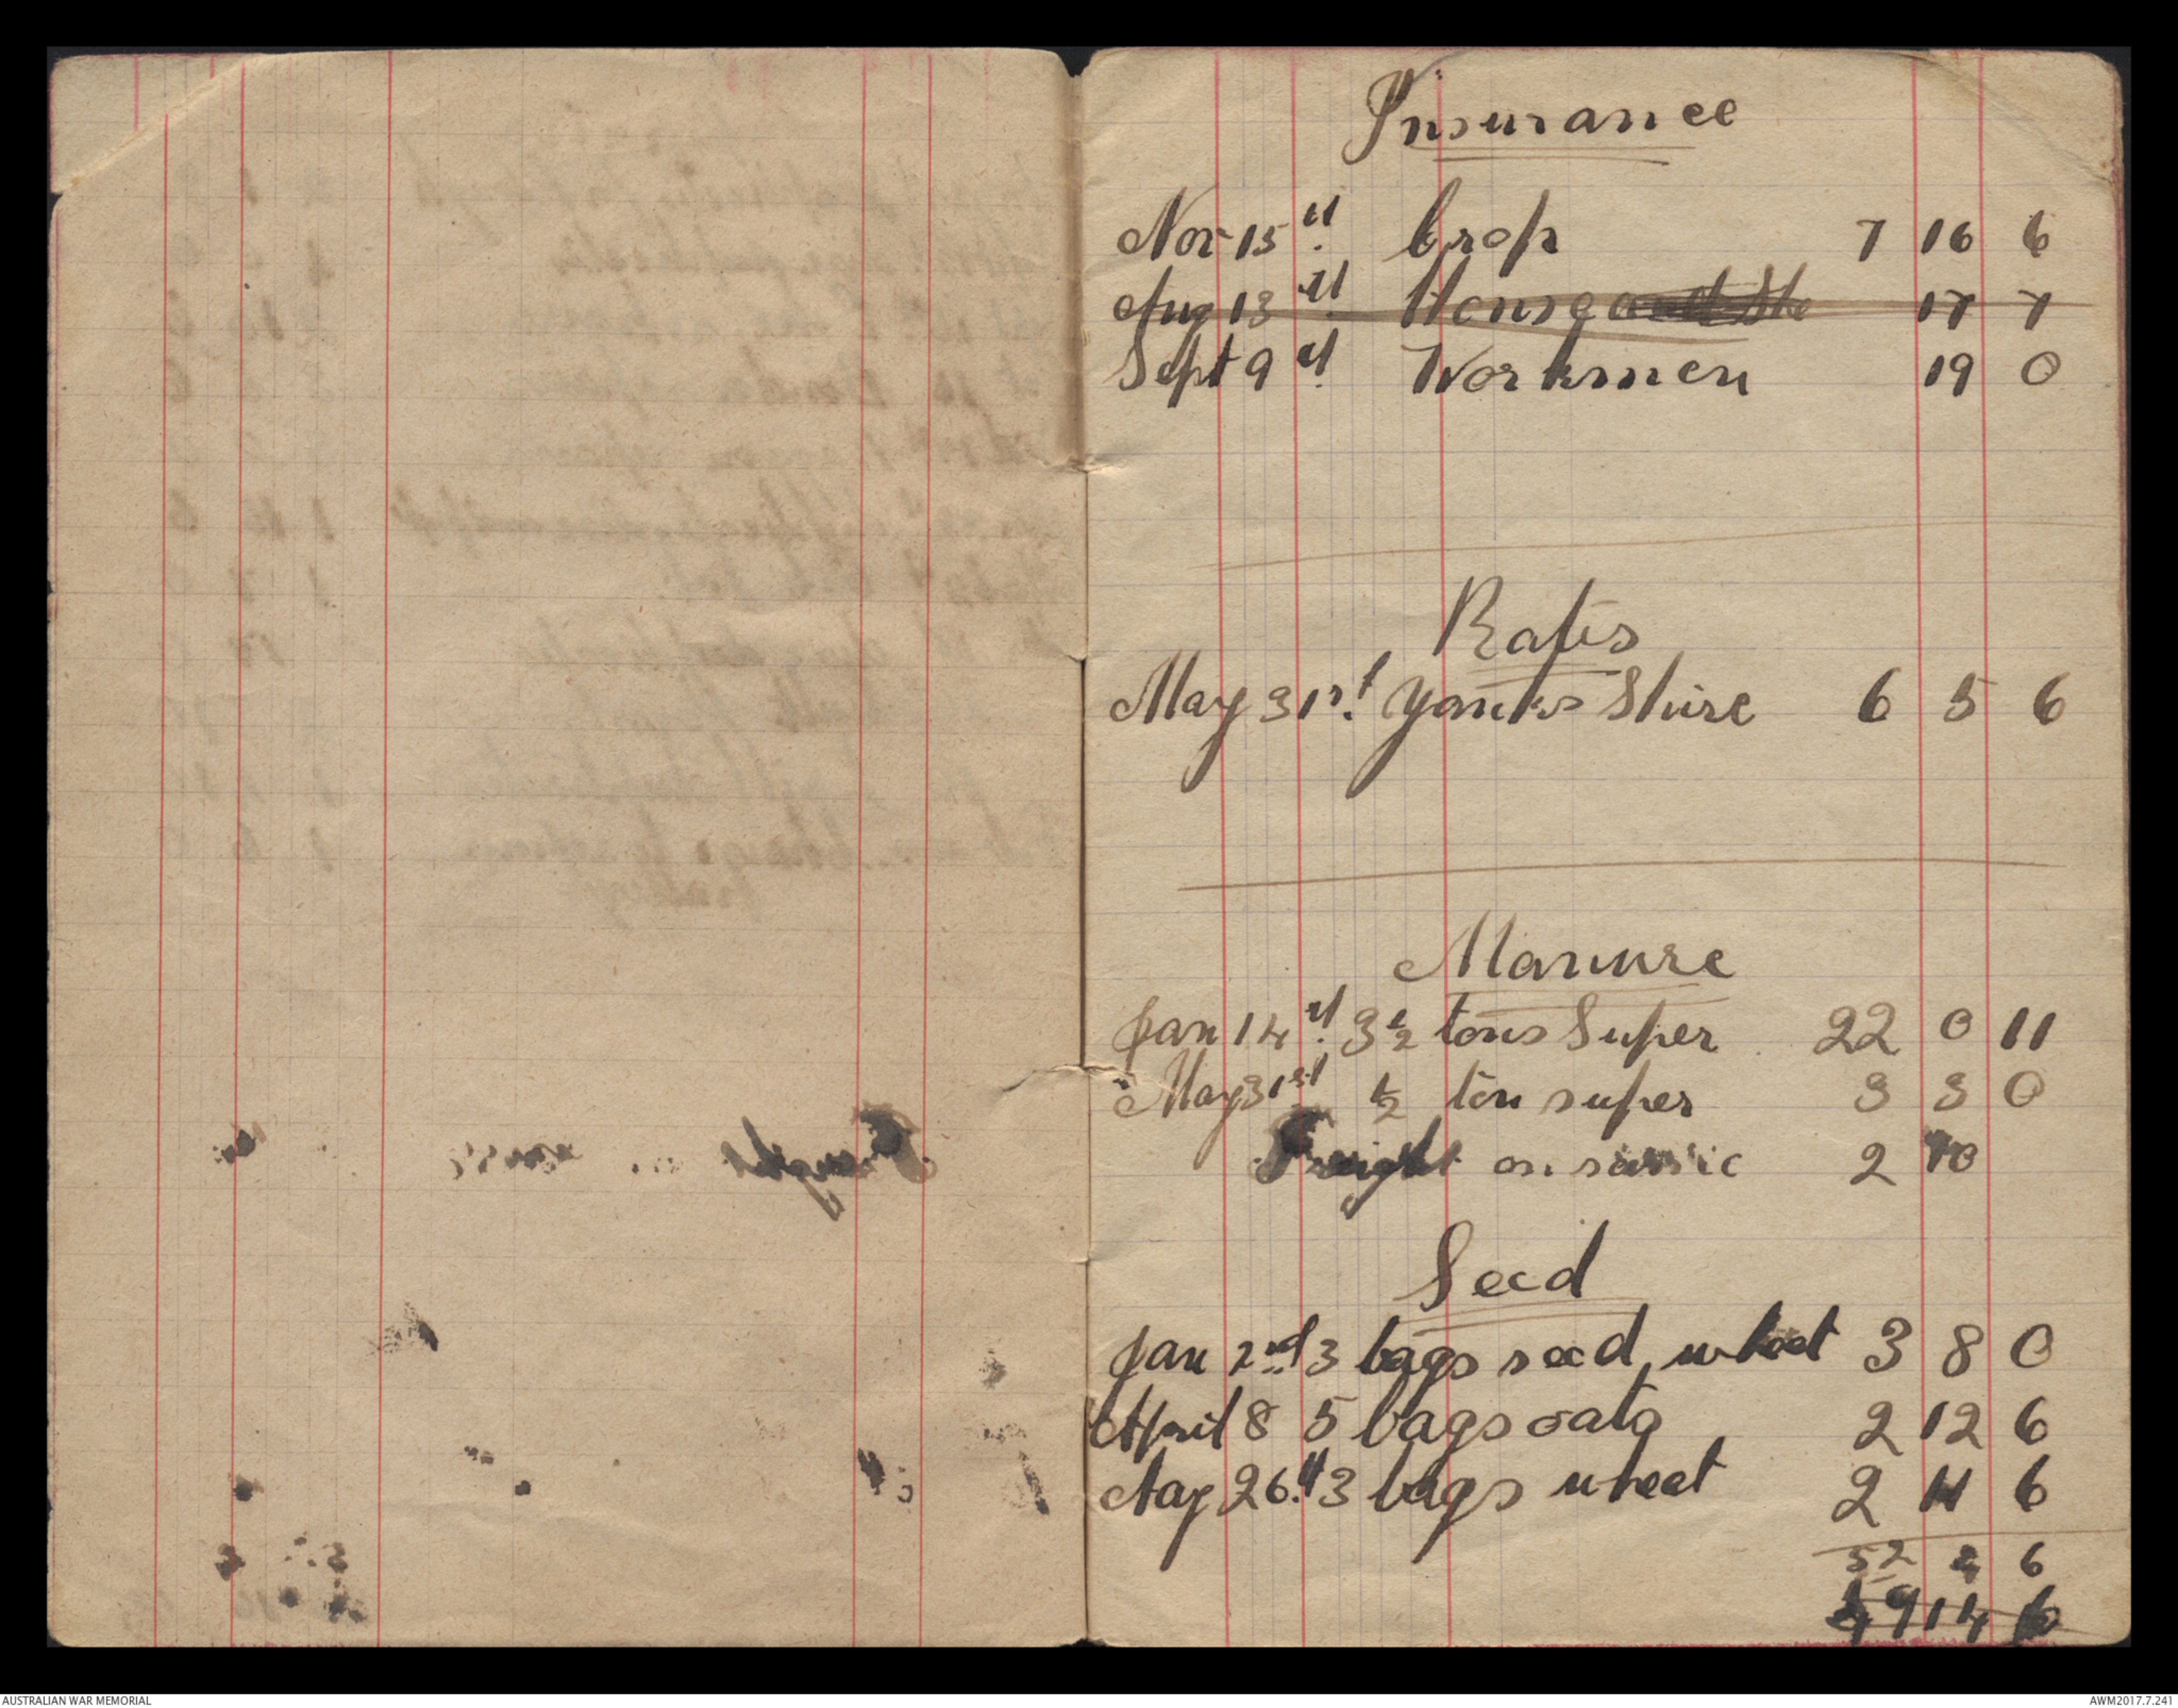 Insurance
Nov 15th Crop 7 16 6
Aug 13th House 17 7
Sept 9th Workmen 19 0
Rates
May 31st Yanko Shire 6 5 6
Manure
Jan 14th 3 1/2 tons Super 22 0 11
May 31st 1/2 ton super 3 3 0
Freight on 2 10
Seed
Jan 2nd 3 bags seed wheat 3 8 0
April 8 5 bags oats 2 12 6
May 26th 3 bags wheat 2 11 6
52 4 6
49 14 6
AUSTRALIAN WAR MEMORIAL
AWM2017.7.241